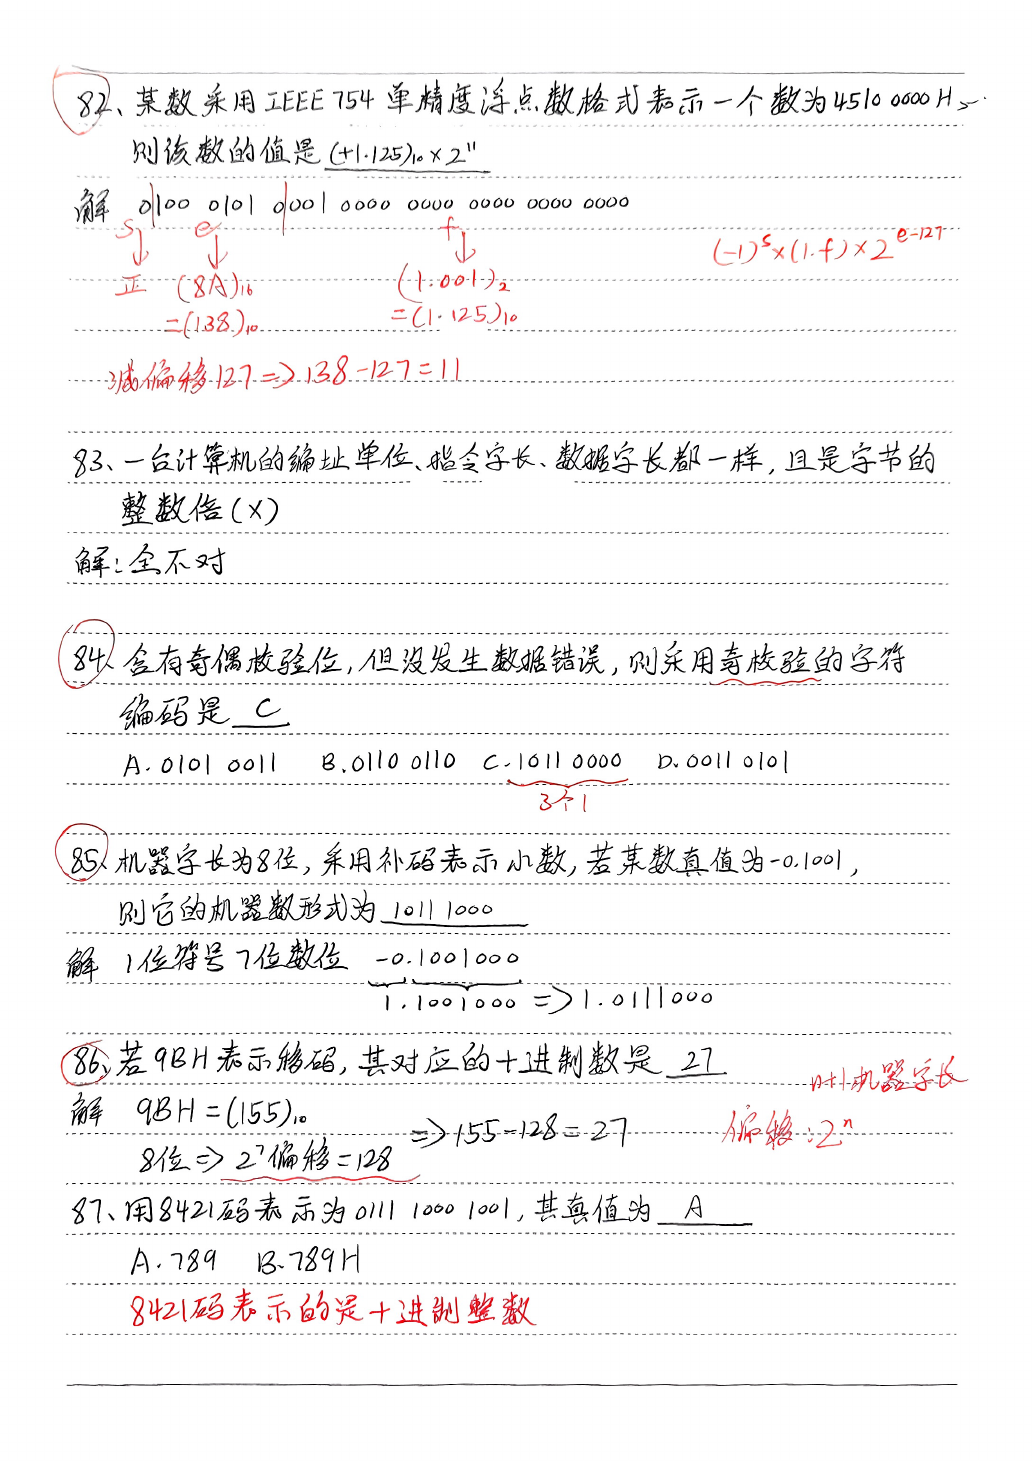 82、某数采用IEEE 754单精度浮点数格式表示一个数为4510 0000H,
则该数的值是 (+1.125)₁₀×2¹¹
解 0|100 0101 0|001 0000 0000 0000 0000 0000
s e f
正 (8A)₁₆ (1.001)₂ (-1)ˢ×(1.f)×2^(e-127)
=(138)₁₀ =(1.125)₁₀
减偏移127=>138-127=11
83、一台计算机的编址单位、指令字长、数据字长都一样,且是字节的
整数倍(X)
解:全不对
84、含有奇偶校验位,但没发生数据错误,则采用奇校验的字符
编码是 C
A.0101 0011 B.0110 0110 C.1011 0000 D.0011 0101
3个1
85、机器字长为8位,采用补码表示小数,若某数真值为-0.1001,
则它的机器数形式为 1011 1000
解 1位符号7位数位 -0.1001000
1.1001000 => 1.0111000
86、若9BH表示移码,其对应的十进制数是 27
n+1机器字长
解 9BH=(155)₁₀
=>155-128=27 偏移:2ⁿ
8位=>2⁷偏移=128
87、用8421码表示为0111 1000 1001,其真值为 A
A.789 B.789H
8421码表示的是十进制整数